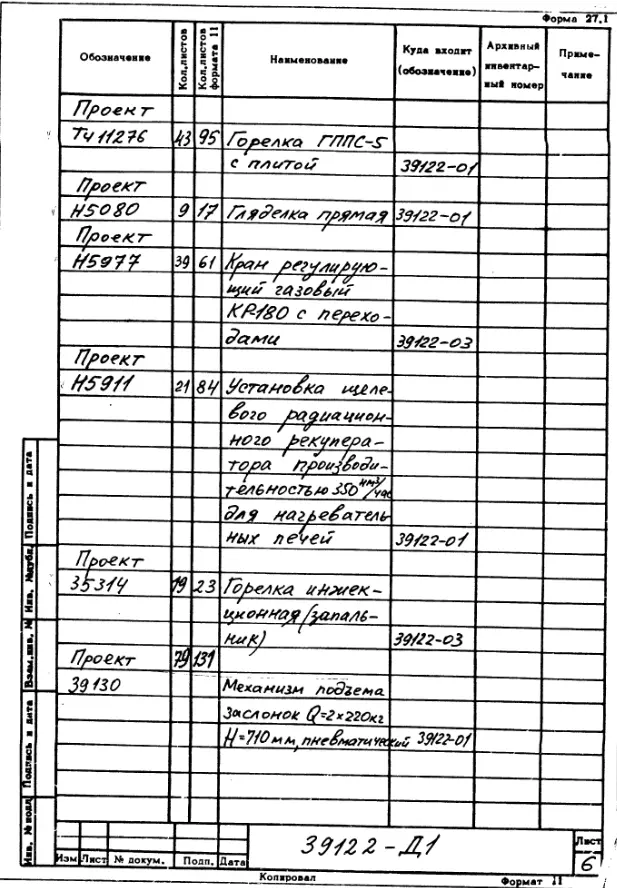 Форма 27.1
Обозначение Кол.листов Кол.листов формата 11 Наименование Куда входит (обозначение) Архивный инвентар- ный номер Приме- чание
Проект
ТЧ 11276 43 95 Горелка ГППС-5
с плитой 39122-01
Проект
Н5080 9 17 Гляделка прямая 39122-01
Проект
Н5977 39 61 Кран регулирую-
щий газовый
КР-180 с перехо-
дами 39122-03
Проект
Н5911 21 84 Установка щеле-
вого радиацион-
ного рекупера-
тора производи-
тельностью 350 нм³/час
для нагреватель-
ных печей 39122-01
Проект
35314 19 23 Горелка инжек-
ционная (запаль-
ник) 39122-03
Проект 79 131
39130 Механизм подъема
заслонок Q=2х220кг
Н=710 мм, пневматический 39122-01
Инв. № подл Подпись и дата Взам.инв. № Инв. № дубл. Подпись и дата
39122-Д1
Лист
6
Изм Лист № докум. Подп. Дата
Копировал Формат 11